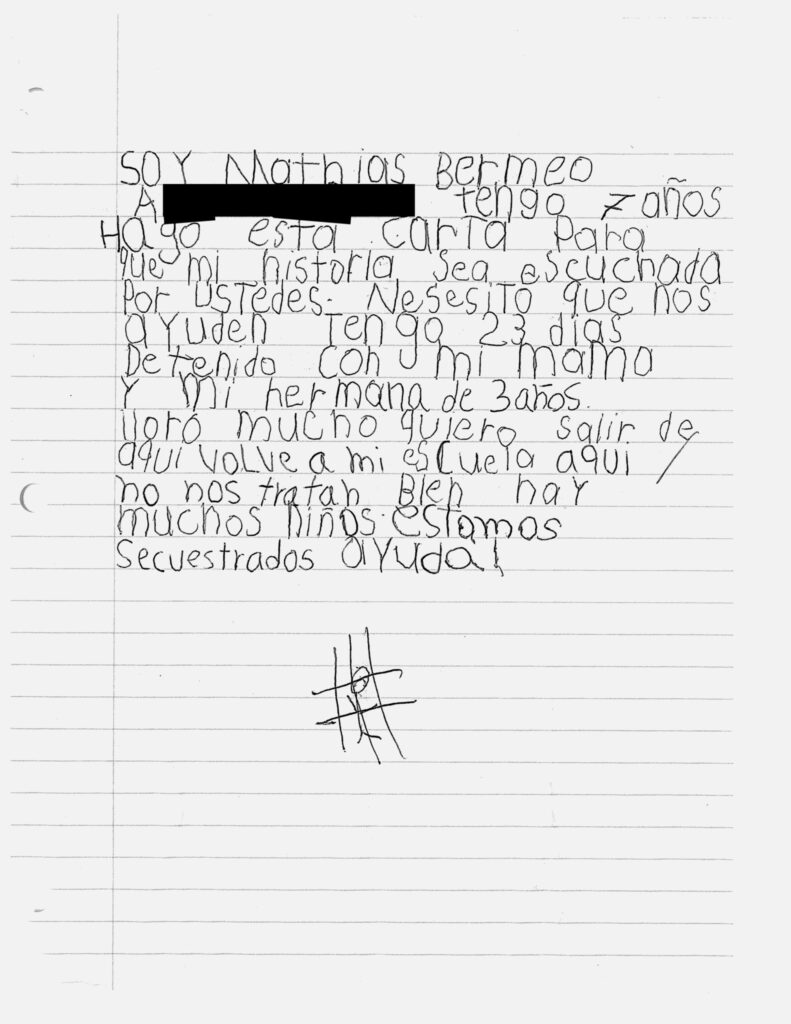 SOY Mathias Bermeo
A tengo 7 años
Hago esta carta para
que mi historia sea escuchada
por ustedes. Nesesito que nos
ayuden Tengo 23 dias
Detenido con mi mama
Y mi hermana de 3 años.
lloro mucho quiero salir de
aqui volve a mi escuela aqui
no nos tratan Bien hay
muchos niños. estamos
secuestrados ayuda!